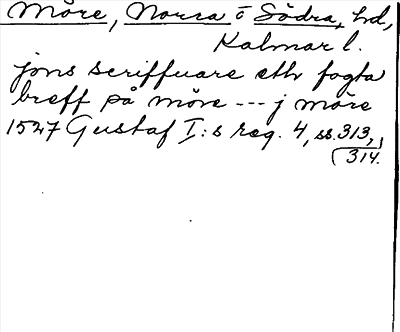 Möre, Norra o Södra, hd,
Kalmar l.
jöns scriffuare eth fogta
breff på möre --- j möre
1527 Gustaf I:s reg. 4, ss. 313,
314.